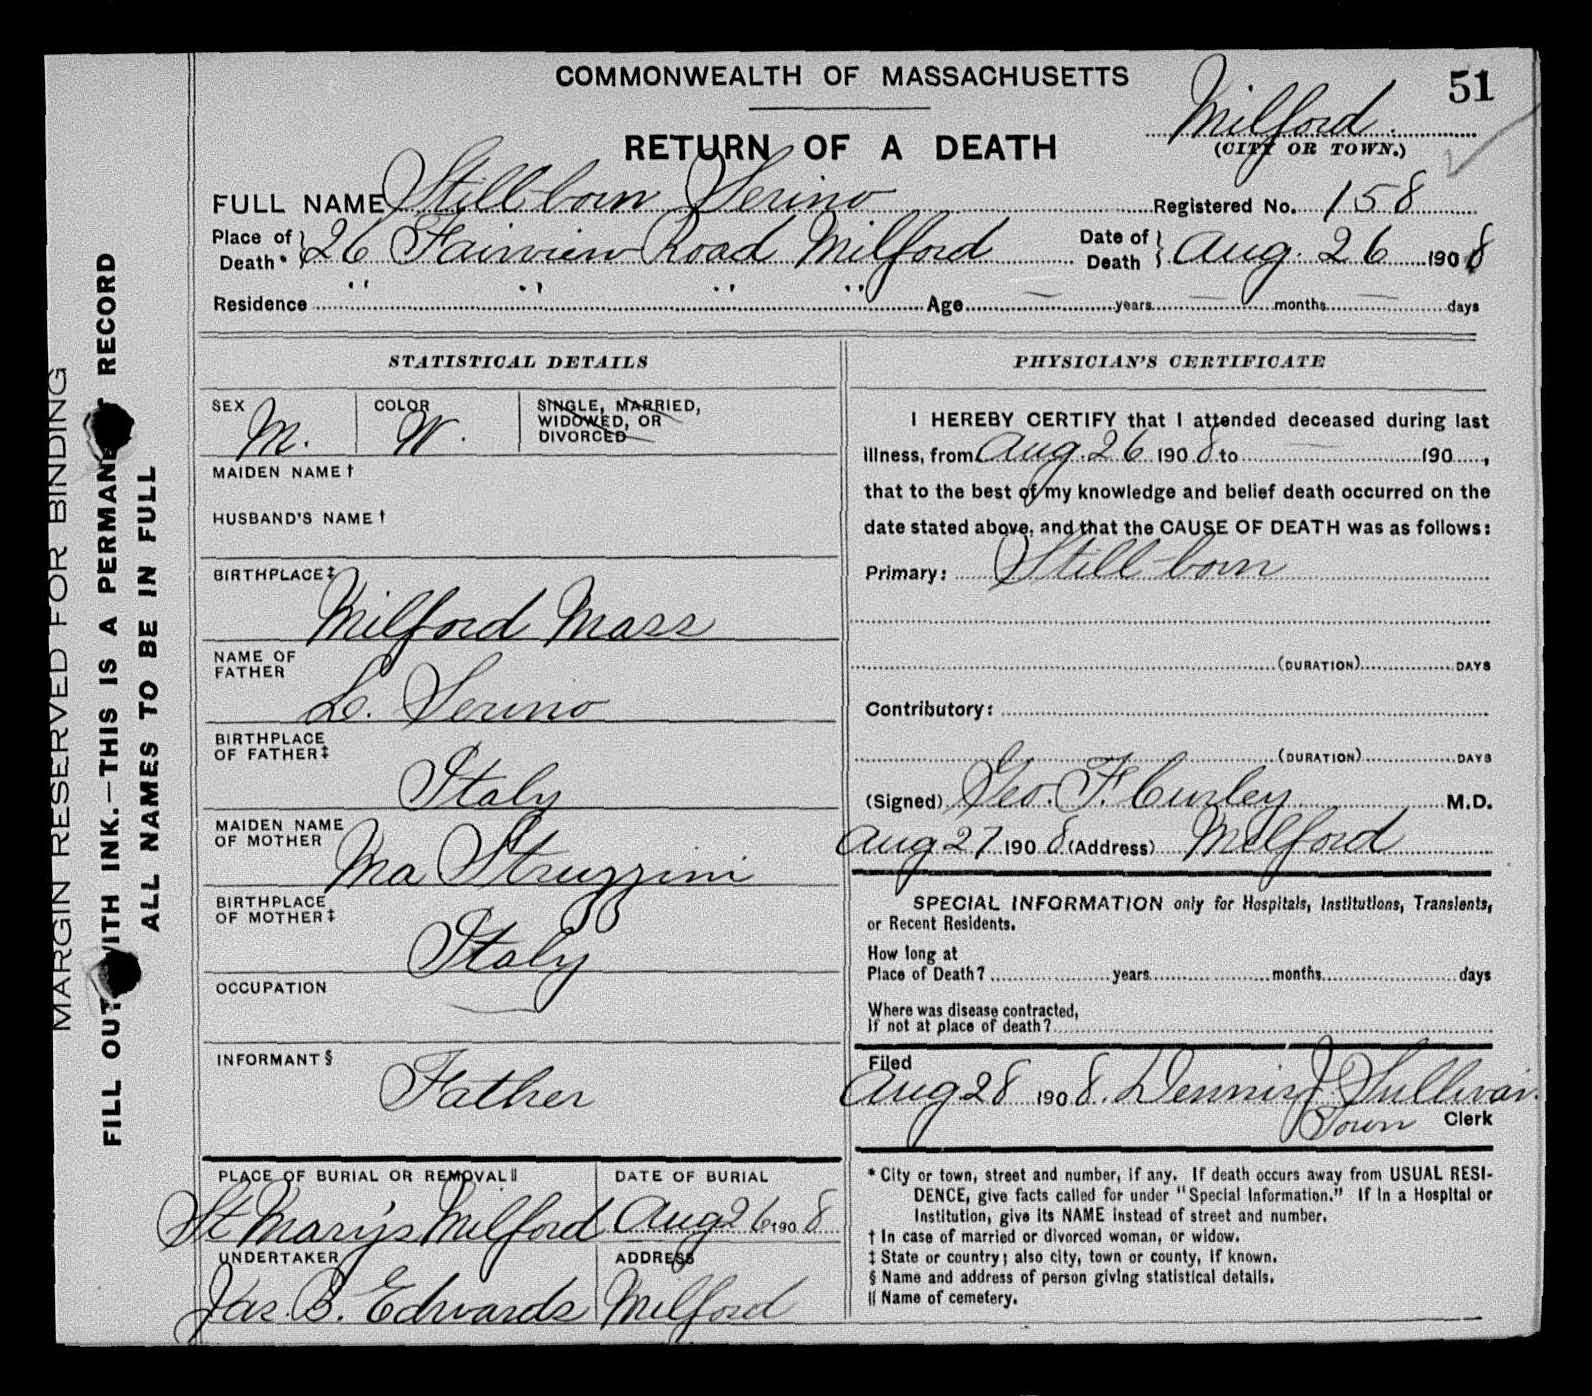 COMMONWEALTH OF MASSACHUSETTS
51
RETURN OF A DEATH
Milford
(CITY OR TOWN.)
FULL NAME Still-born Serino Registered No. 158
Place of Death* 26 Fairview Road Milford Date of Death Aug. 26 1908
Residence " " " " Age — years — months — days
STATISTICAL DETAILS
SEX M. COLOR W. SINGLE, MARRIED, WIDOWED, OR DIVORCED
MAIDEN NAME †
HUSBAND'S NAME †
BIRTHPLACE ‡
Milford Mass
NAME OF FATHER
L. Serino
BIRTHPLACE OF FATHER ‡
Italy
MAIDEN NAME OF MOTHER
Ma Struzzini
BIRTHPLACE OF MOTHER ‡
Italy
OCCUPATION
INFORMANT §
Father
PLACE OF BURIAL OR REMOVAL ||
St Mary's Milford
DATE OF BURIAL
Aug 26 1908
UNDERTAKER
Jas. B. Edwards
ADDRESS
Milford
PHYSICIAN'S CERTIFICATE
I HEREBY CERTIFY that I attended deceased during last
illness, from Aug. 26 1908 to — 190 ,
that to the best of my knowledge and belief death occurred on the
date stated above, and that the CAUSE OF DEATH was as follows:
Primary: Still-born
(DURATION) DAYS
Contributory:
(DURATION) DAYS
(Signed) Geo. F. Curley M.D.
Aug 27 1908 (Address) Milford
SPECIAL INFORMATION only for Hospitals, Institutions, Transients,
or Recent Residents.
How long at
Place of Death? years months days
Where was disease contracted,
If not at place of death?
Filed
Aug 28 1908. Dennis J. Sullivan.
Town Clerk
* City or town, street and number, if any. If death occurs away from USUAL RESI-
DENCE, give facts called for under "Special Information." If in a Hospital or
Institution, give its NAME instead of street and number.
† In case of married or divorced woman, or widow.
‡ State or country; also city, town or county, if known.
§ Name and address of person giving statistical details.
|| Name of cemetery.
MARGIN RESERVED FOR BINDING
FILL OUT WITH INK.—THIS IS A PERMANENT RECORD
ALL NAMES TO BE IN FULL